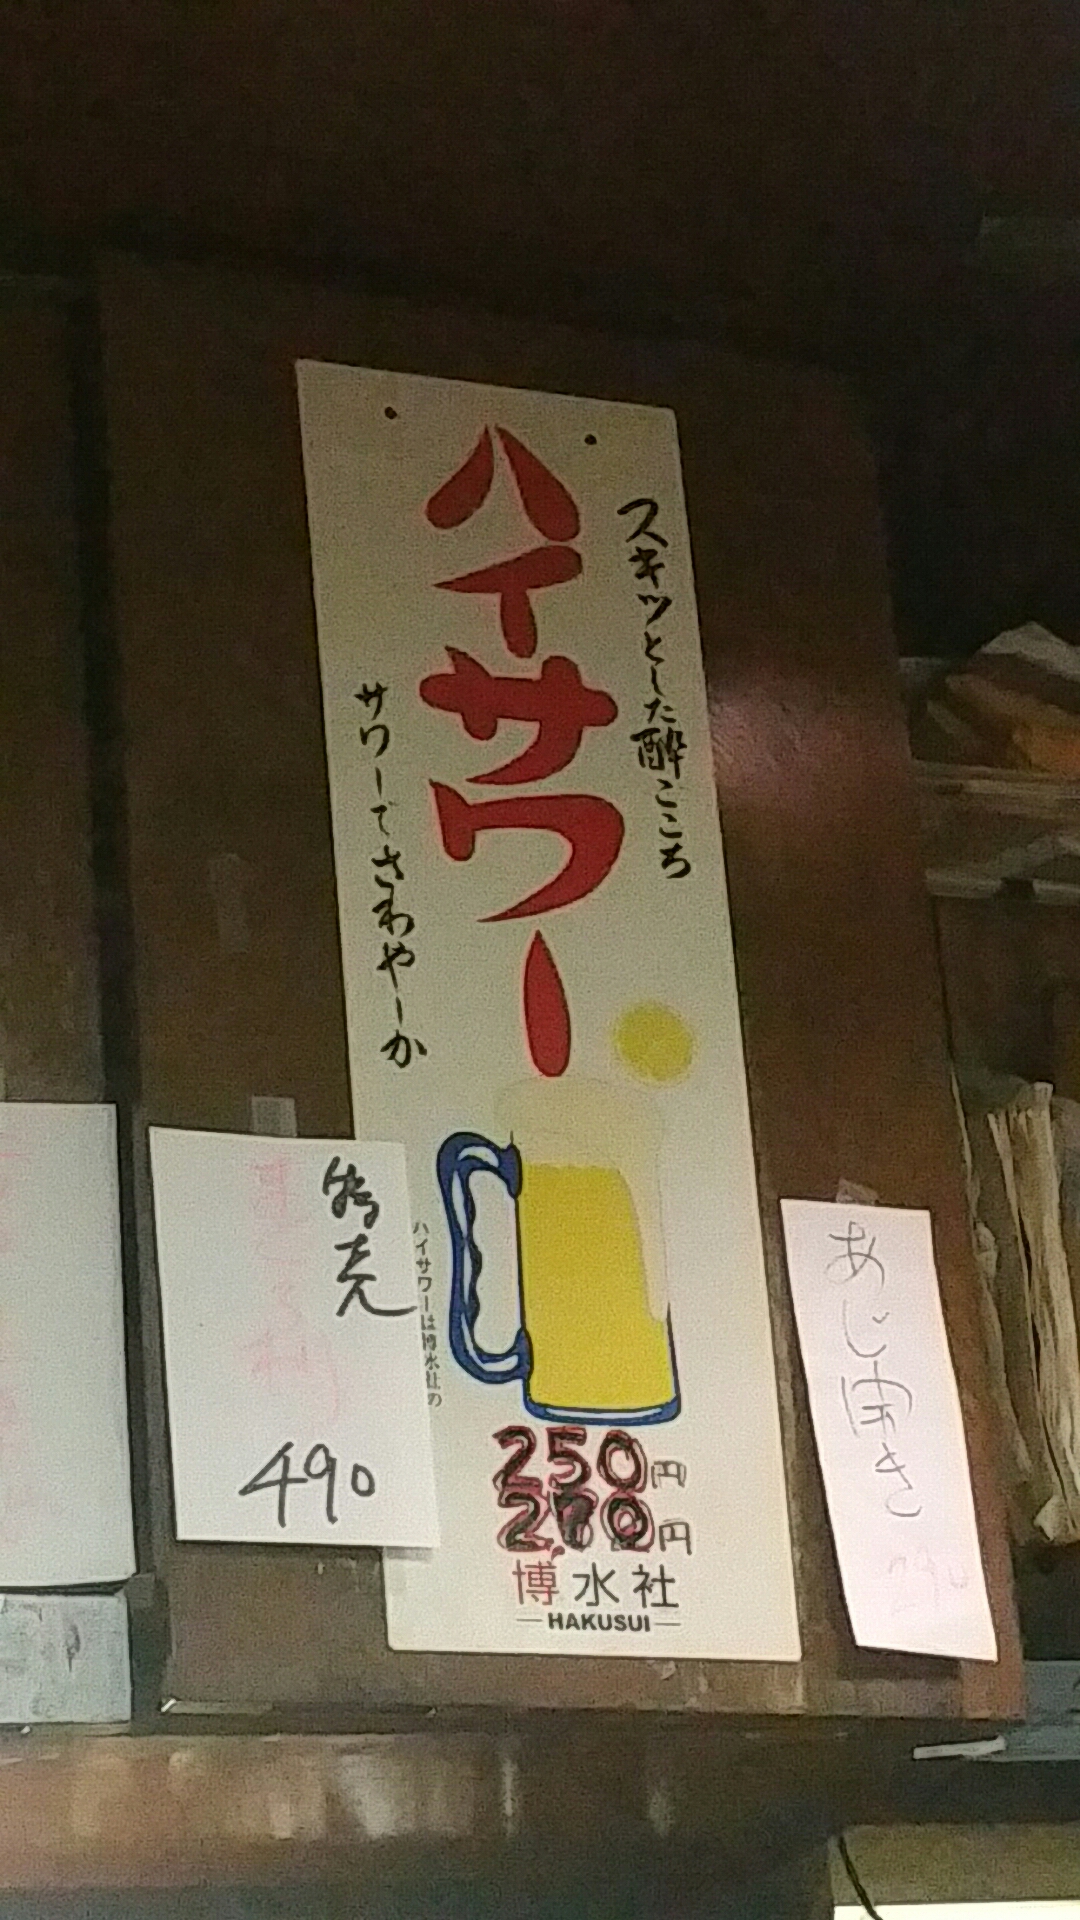 スキッとした酔ごこち
ハイサワー
サワーでさわやーか
ハイサワーは博水社の
250円
270円
博水社
HAKUSUI
特売
490
あじ開き
290